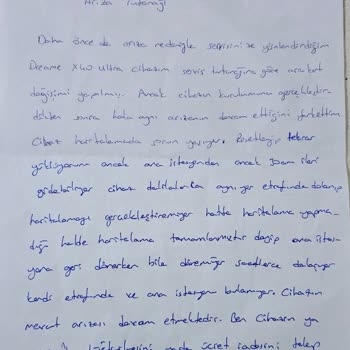 Arıza Tutanağı
Daha önce de arıza nedeniyle servisinize yönlendirdiğim
Dreame X40 Ultra cihazım servis tutanağına göre ana kart
değişimi yapılmış. Ancak cihazın kurulumunu gerçekleştir
dikten sonra hala aynı arızanın devam ettiğini farkettim.
Cihaz haritalamada sorun yaşıyor. tekrar
yüklüyorum ancak ana istasyondan ancak 30cm ileri
gidebiliyor cihaz dakikalarca aynı yer etrafında dolanıp
haritalamayı gerçekleştiremiyor hatta haritalama yapma-
dığı halde haritalama tamamlanmıştır deyip ana istas-
yona geri dönerken bile dönemiyor saatlerce dolaşıyor
kendi etrafında ve ana istasyonu bulamıyor. Cihazın
mevcut arızası devam etmektedir. Ben cihazın ya
ücret iadesini talep